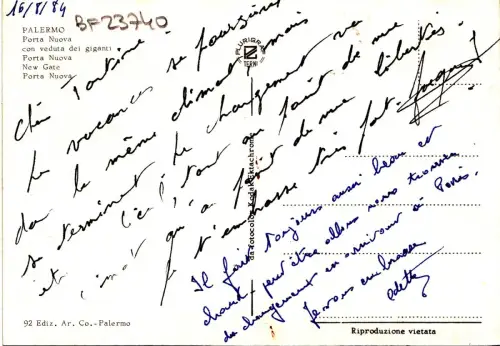 16/8/84
BF23740
PALERMO
Porta Nuova
con veduta dei giganti
Porta Nuova
New Gate
Porta Nuova
PLURIGRAF
TERNI
da fotocolor Kodak Ektachrome
Les vacances se poursuivent
dans le même climat, mais
se terminent. Le changement va
tant au point de vue
climat qu'au point de vue libertés.
Je t'embrasse très fort.
Il fait toujours aussi beau et
chaud, peut être allons nous trouver
du changement en arrivant à Paris.
Je vous embrasse
Odette
92 Ediz. Ar. Co.-Palermo
Riproduzione vietata